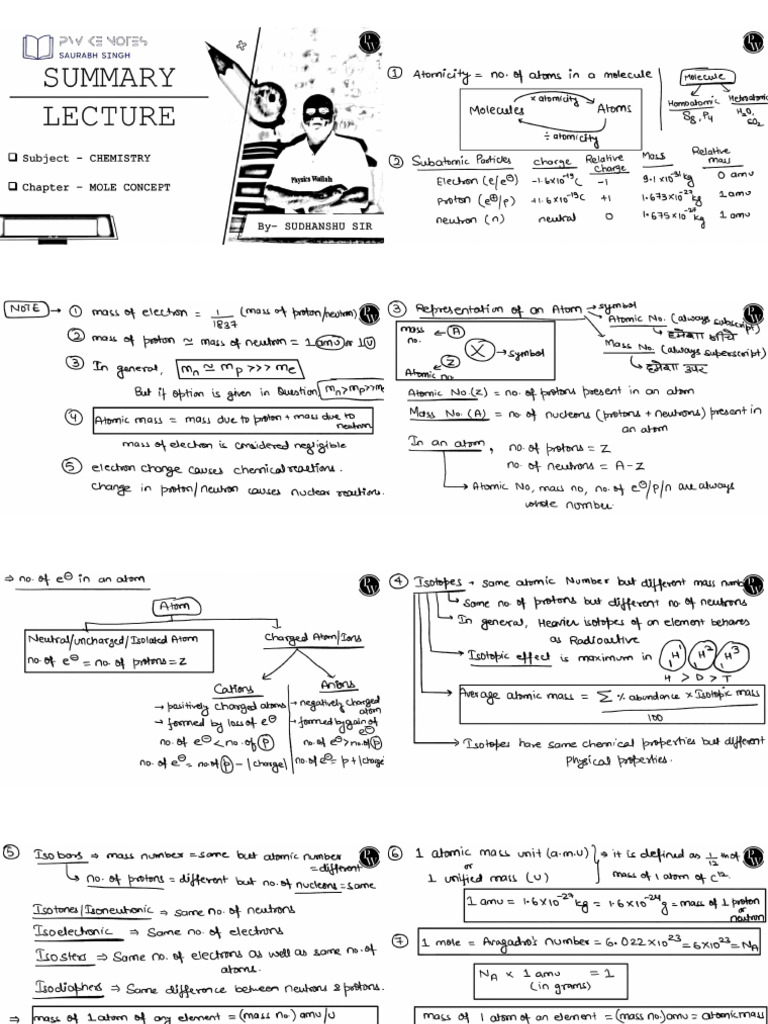 PW KE NOTES
SAURABH SINGH
SUMMARY
LECTURE
Subject - CHEMISTRY
Chapter - MOLE CONCEPT
Physics Wallah
By- SUDHANSHU SIR
① Atomicity = no. of atoms in a molecule
Molecule
Homoatomic
S8, P4
Heteroatomic
H2O,
SO2
Molecules × atomicity Atoms
÷ atomicity
② Subatomic Particles charge Relative charge Mass Relative mass
Electron (e/e⊖) -1.6×10⁻¹⁹C -1 9.1×10⁻³¹kg 0 amu
Proton (e⊕/p) +1.6×10⁻¹⁹C +1 1.673×10⁻²⁷kg 1 amu
neutron (n) neutral 0 1.675×10⁻²⁷kg 1 amu
NOTE → ① mass of electron = 1/1837 (mass of proton/neutron)
② mass of proton ≃ mass of neutron = 1 amu or 1 u
③ In general, mn ≃ mp >>> me
But if option is given in Question, mn > mp >> me
④ Atomic mass = mass due to proton + mass due to neutron
mass of electron is considered negligible
⑤ electron change causes chemical reactions.
change in proton/neutron causes nuclear reactions.
③ Representation of an Atom → symbol
→ Atomic No. (always subscript)
↳ हमेशा नीचे
Mass No. (always superscript)
↳ हमेशा ऊपर
mass no. ← A
X → symbol
Atomic no. ← Z
Atomic No. (Z) = no. of protons present in an atom
Mass No. (A) = no. of nucleons (protons + neutrons) present in
an atom
In an atom, no. of protons = Z
no. of neutrons = A-Z
→ Atomic No, mass no, no. of e⊖/p/n are always
whole number
⇒ no. of e⊖ in an atom
Atom
Neutral/uncharged/Isolated Atom
no. of e⊖ = no. of protons = Z
Charged Atom/Ions
Cations
→ positively charged atoms
→ formed by loss of e⊖
no. of e⊖ < no. of p
no. of e⊖ = no. of p - |charge|
Anions
→ negatively charged atom
→ formed by gain of e⊖
no. of e⊖ > no. of p
no. of e⊖ = p + |charge
④ Isotopes → same atomic Number but different mass numb
↳ same no. of protons but different no. of neutrons
→ In general, Heavier isotopes of an element behaves
as Radioactive
→ Isotopic effect is maximum in H¹ H² H³
H > D > T
→ Average atomic mass = Σ % abundance × Isotopic mass
100
→ Isotopes have same chemical properties but different
Physical properties.
⑤ Isobars ⇒ mass number = same but atomic number
= different
↳ no. of protons = different but no. of nucleons = same
Isotones/Isoneutronic ⇒ same no. of neutrons
Isoelectronic ⇒ Same no. of electrons
Isosters ⇒ Same no. of electrons as well as same no. of
atoms.
Isodiaphers ⇒ Same difference between neutrons & protons.
⇒ mass of 1 atom of any element = (mass no.) amu/u
⑥ 1 atomic mass unit (a.m.u)
or
1 unified mass (u)
→ it is defined as 1/12 th of
mass of 1 atom of C¹².
1 amu = 1.6×10⁻²⁷kg = 1.6×10⁻²⁴g = mass of 1 proton
or neutron
⑦ 1 mole = Avagadro's number = 6.022×10²³ = 6×10²³ = NA
NA × 1 amu = 1
(in grams)
mass of 1 atom of an element = (mass no.)amu = atomic mass